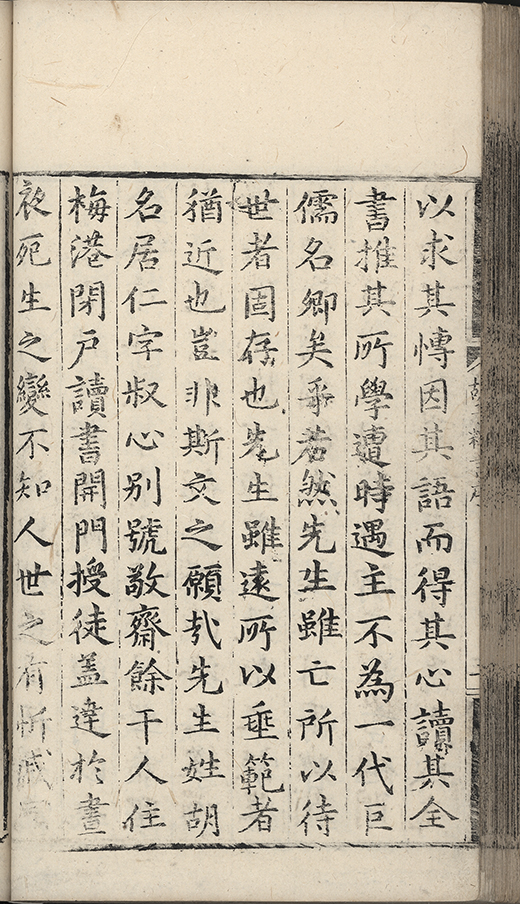 以求其慱因其語而得其心讀其全
書推其所學遭時遇主不為一代巨
儒名卿矣乎若然先生雖亡所以待
世者固存也先生雖遠所以垂範者
猶近也豈非斯文之願㢤先生姓胡
名居仁字叔心别號敬齋餘干人住
梅港閉户讀書開門授徒盖達於晝
夜死生之變不知人世之有忻戚